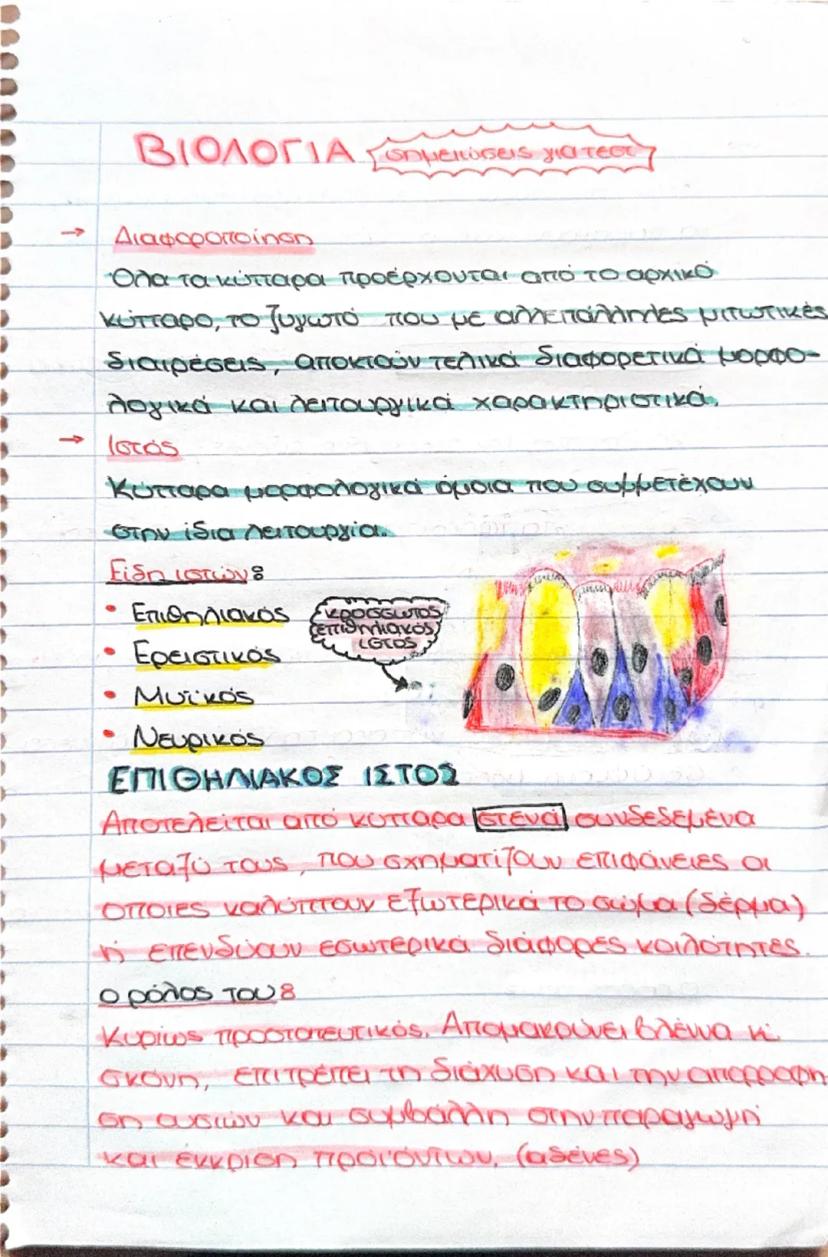 ΒΙΟΛΟΓΙΑ σημειώσεις για τεστ
→ Διαφοροποίηση
Όλα τα κύτταρα προέρχονται από το αρχικό
κύτταρο, το ζυγωτό που με αλλεπάλληλες μιτωτικές
διαιρέσεις, αποκτούν τελικά διαφορετικά μορφο-
λογικά και λειτουργικά χαρακτηριστικά.
→ Ιστός
Κύτταρα μορφολογικά όμοια που συμμετέχουν
στην ίδια λειτουργία.
Είδη ιστών:
• Επιθηλιακός
κροσσωτός
επιθηλιακός
ιστός
• Ερειστικός
• Μυϊκός
• Νευρικός
ΕΠΙΘΗΛΙΑΚΟΣ ΙΣΤΟΣ
Αποτελείται από κύτταρα στενά συνδεδεμένα
μεταξύ τους, που σχηματίζουν επιφάνειες οι
οποίες καλύπτουν εξωτερικά το σώμα (δέρμα)
ή επενδύουν εσωτερικά διάφορες κοιλότητες.
ο ρόλος του:
Κυρίως προστατευτικός. Απομακρύνει βλέννα κ.
σκόνη, επιτρέπει τη διάχυση και την απορρόφη
ση ουσιών και συμβάλλη στην παραγωγή
και έκκριση προϊόντων. (αδένες)